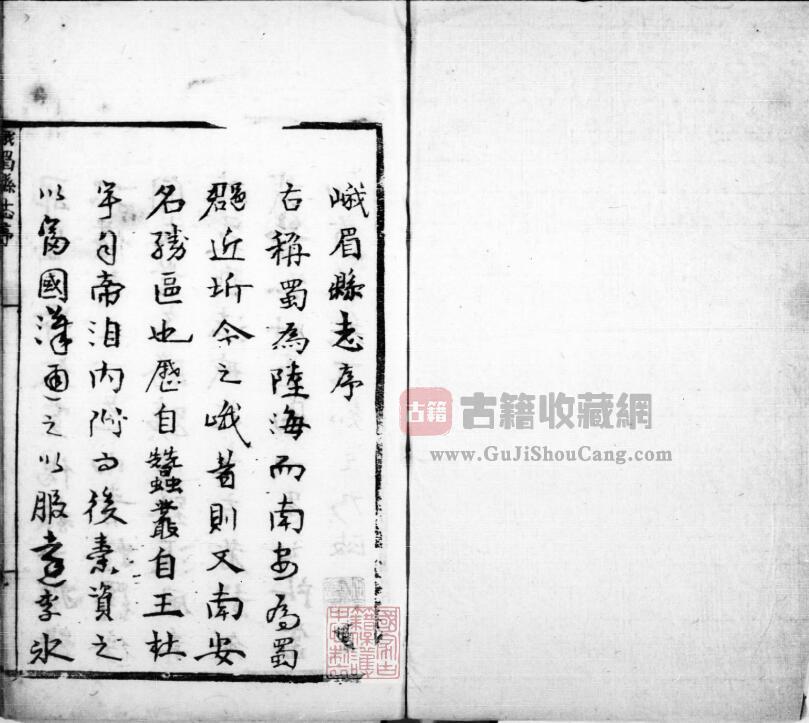 峨眉縣志序
古稱蜀為陸海而南安為蜀
郡近圻今之峨昔則又南安
名勝區也歷自蠶叢自王杜
宇自帝洎內附而後秦資之
以富國漢通之以服遠李冰
峨眉縣志序
古籍
古籍收藏網
www.GuJiShouCang.com
國家古
籍保護